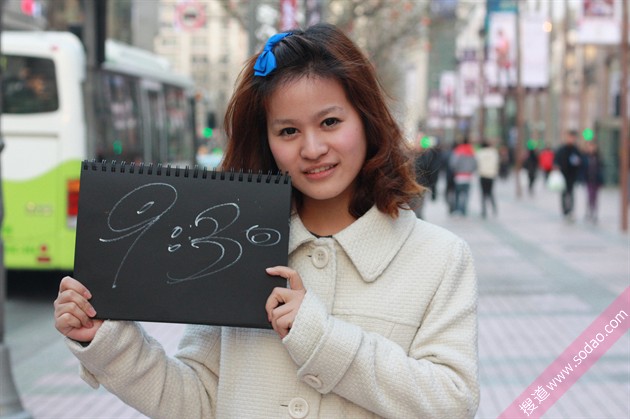 9:30
搜道 www.sodao.com